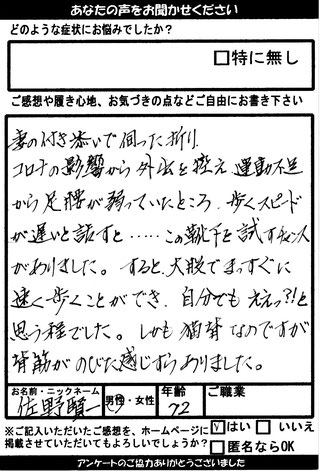 あなたの声をお聞かせください
どのような症状にお悩みでしたか?
□特に無し
ご感想や履き心地、お気づきの点などご自由にお書き下さい
妻の付き添いで伺った折り、
コロナの影響から外出を控え運動不足
から足腰が弱っていたところ、歩くスピード
が遅いと話すと……この靴下を試すチャンス
がありました。すると、大股でまっすぐに
速く歩くことができ、自分でもええっ?!と
思う程でした。しかも猫背なのですが
背筋がのびた感じすらありました。
お名前・ニックネーム
佐野賢一
男性・女性
年齢
72
ご職業
※ご記入いただいたご感想を、ホームページに
掲載させていただいてもよろしいでしょうか?
☑はい □いいえ
□匿名ならOK
アンケートのご協力ありがとうございました